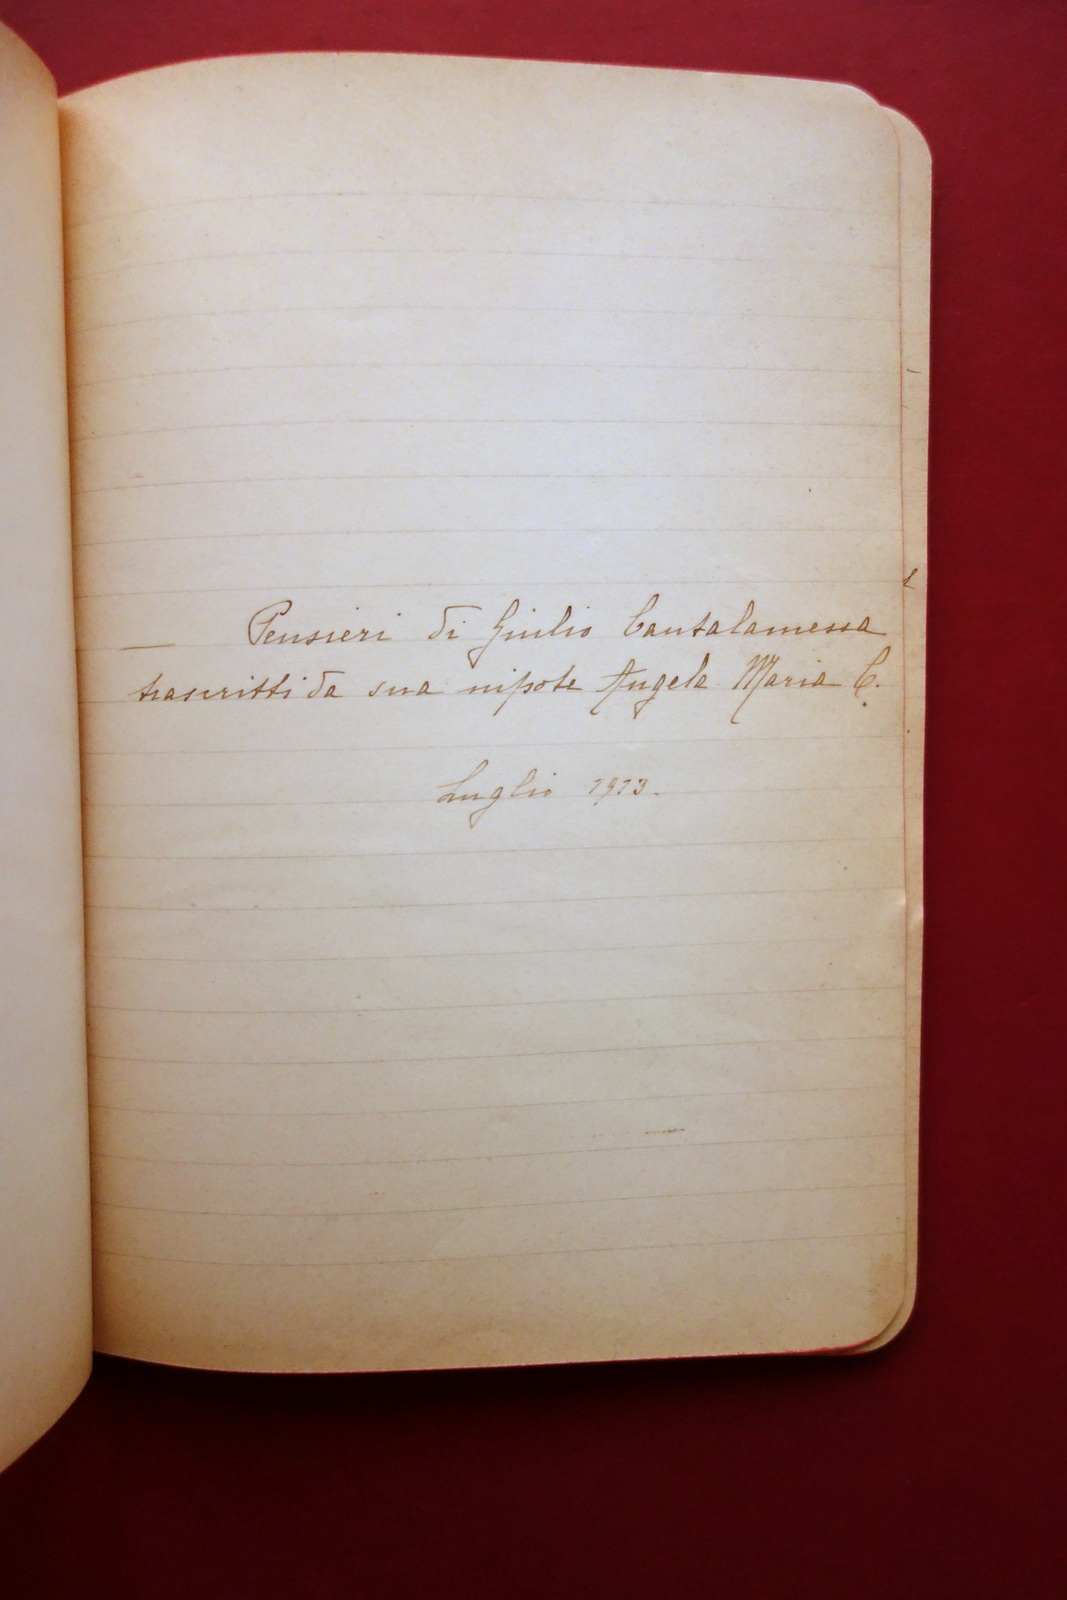 — Pensieri di Giulio Cantalamessa
trascritti da sua nipote Angela Maria C.
Luglio 1913.